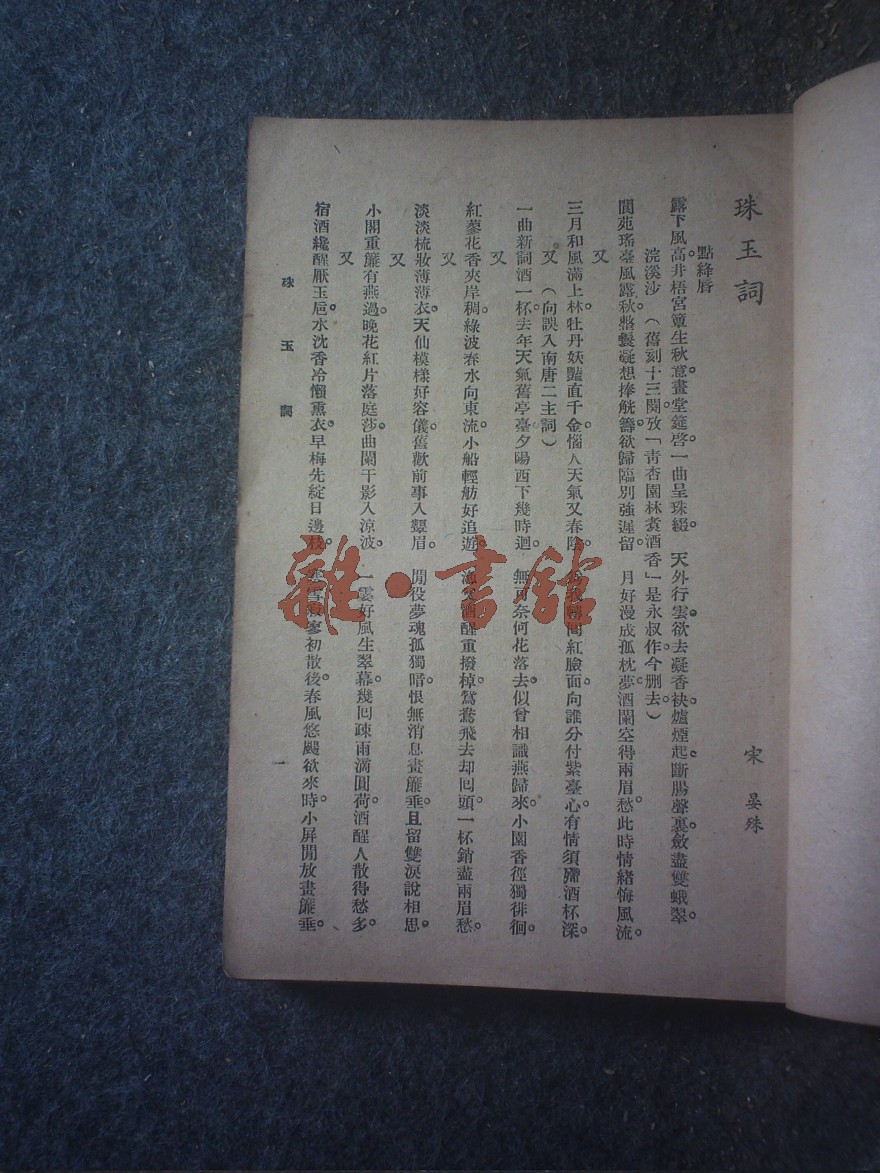 珠玉詞
宋 晏殊
點絳唇
露下風高。井梧宮簟生秋意。畫堂筵啓。一曲呈珠綴。 天外行雲。欲去凝香袂。爐煙起。斷腸聲裏。斂盡雙蛾翠。
浣溪沙 (舊刻十三闋攷「青杏園林煑酒香」是永叔作今刪去)
閬苑瑤臺風露秋。整鬟凝想捧觥籌。欲歸臨別強遲留。 月好漫成孤枕夢。酒闌空得兩眉愁。此時情緒悔風流。
又
三月和風滿上林。牡丹妖豔直千金。惱人天氣又春陰。 轉回紅臉面。向誰分付紫臺心。有情須殢酒杯深。
又 (向誤入南唐二主詞)
一曲新詞酒一杯。去年天氣舊亭臺。夕陽西下幾時迴。 無可奈何花落去。似曾相識燕歸來。小園香徑獨徘徊。
又
紅蓼花香夾岸稠。綠波春水向東流。小船輕舫好追遊。 漁父酒醒重撥棹。鴛鴦飛去却回頭。一杯銷盡兩眉愁。
又
淡淡梳妝薄薄衣。天仙模樣好容儀。舊歡前事入顰眉。 閒役夢魂孤獨暗。恨無消息畫簾垂。且留雙淚說相思。
又
小閣重簾有燕過。晚花紅片落庭莎。曲闌干影入涼波。 一霎好風生翠幕。幾回疎雨滴圓荷。酒醒人散得愁多。
又
宿酒纔醒厭玉巵。水沈香冷懶熏衣。早梅先綻日邊枝。 寒雪寂寥初散後。春風悠颺欲來時。小屏閒放畫簾垂。
珠玉詞
一
雜·書館